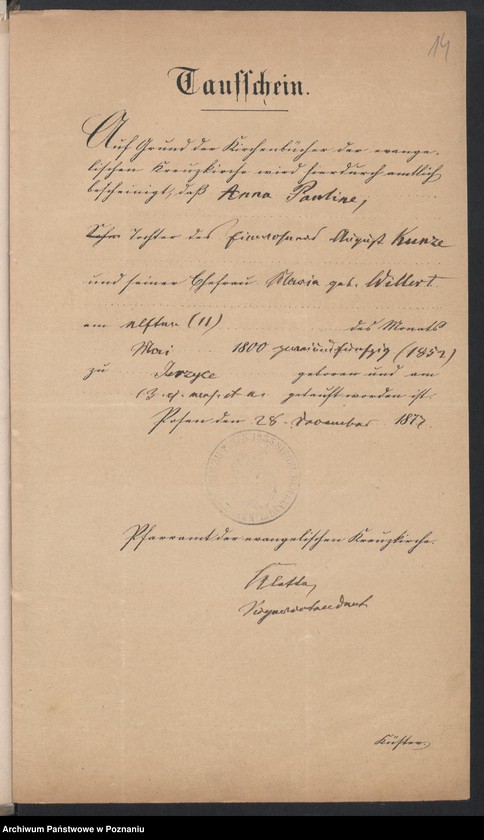 14
Taufschein.
Auf Grund der Kirchenbücher der evange-
lischen Kreuzkirche wird hierdurch amtlich
bescheinigt, daß Anna Pauline,
Sohn Tochter des Einwohners August Kunze
und seiner Ehefrau Maria geb. Willert
am elften (11) des Monats
Mai 1800 zweiundfünfzig (1852)
zu Jerzyce geboren und am
getauft worden ist.
Posen den 28. November 1877.
Pfarramt der evangelischen Kreuzkirche.
Kletke,
Superintendent
Küster.
Archiwum Państwowe w Poznaniu